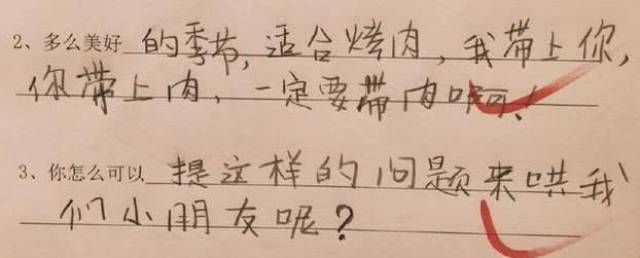 2、多么美好的季节,适合烤肉,我带上你,
你带上肉,一定要带肉啊!
3、你怎么可以提这样的问题来哄我
们小朋友呢?